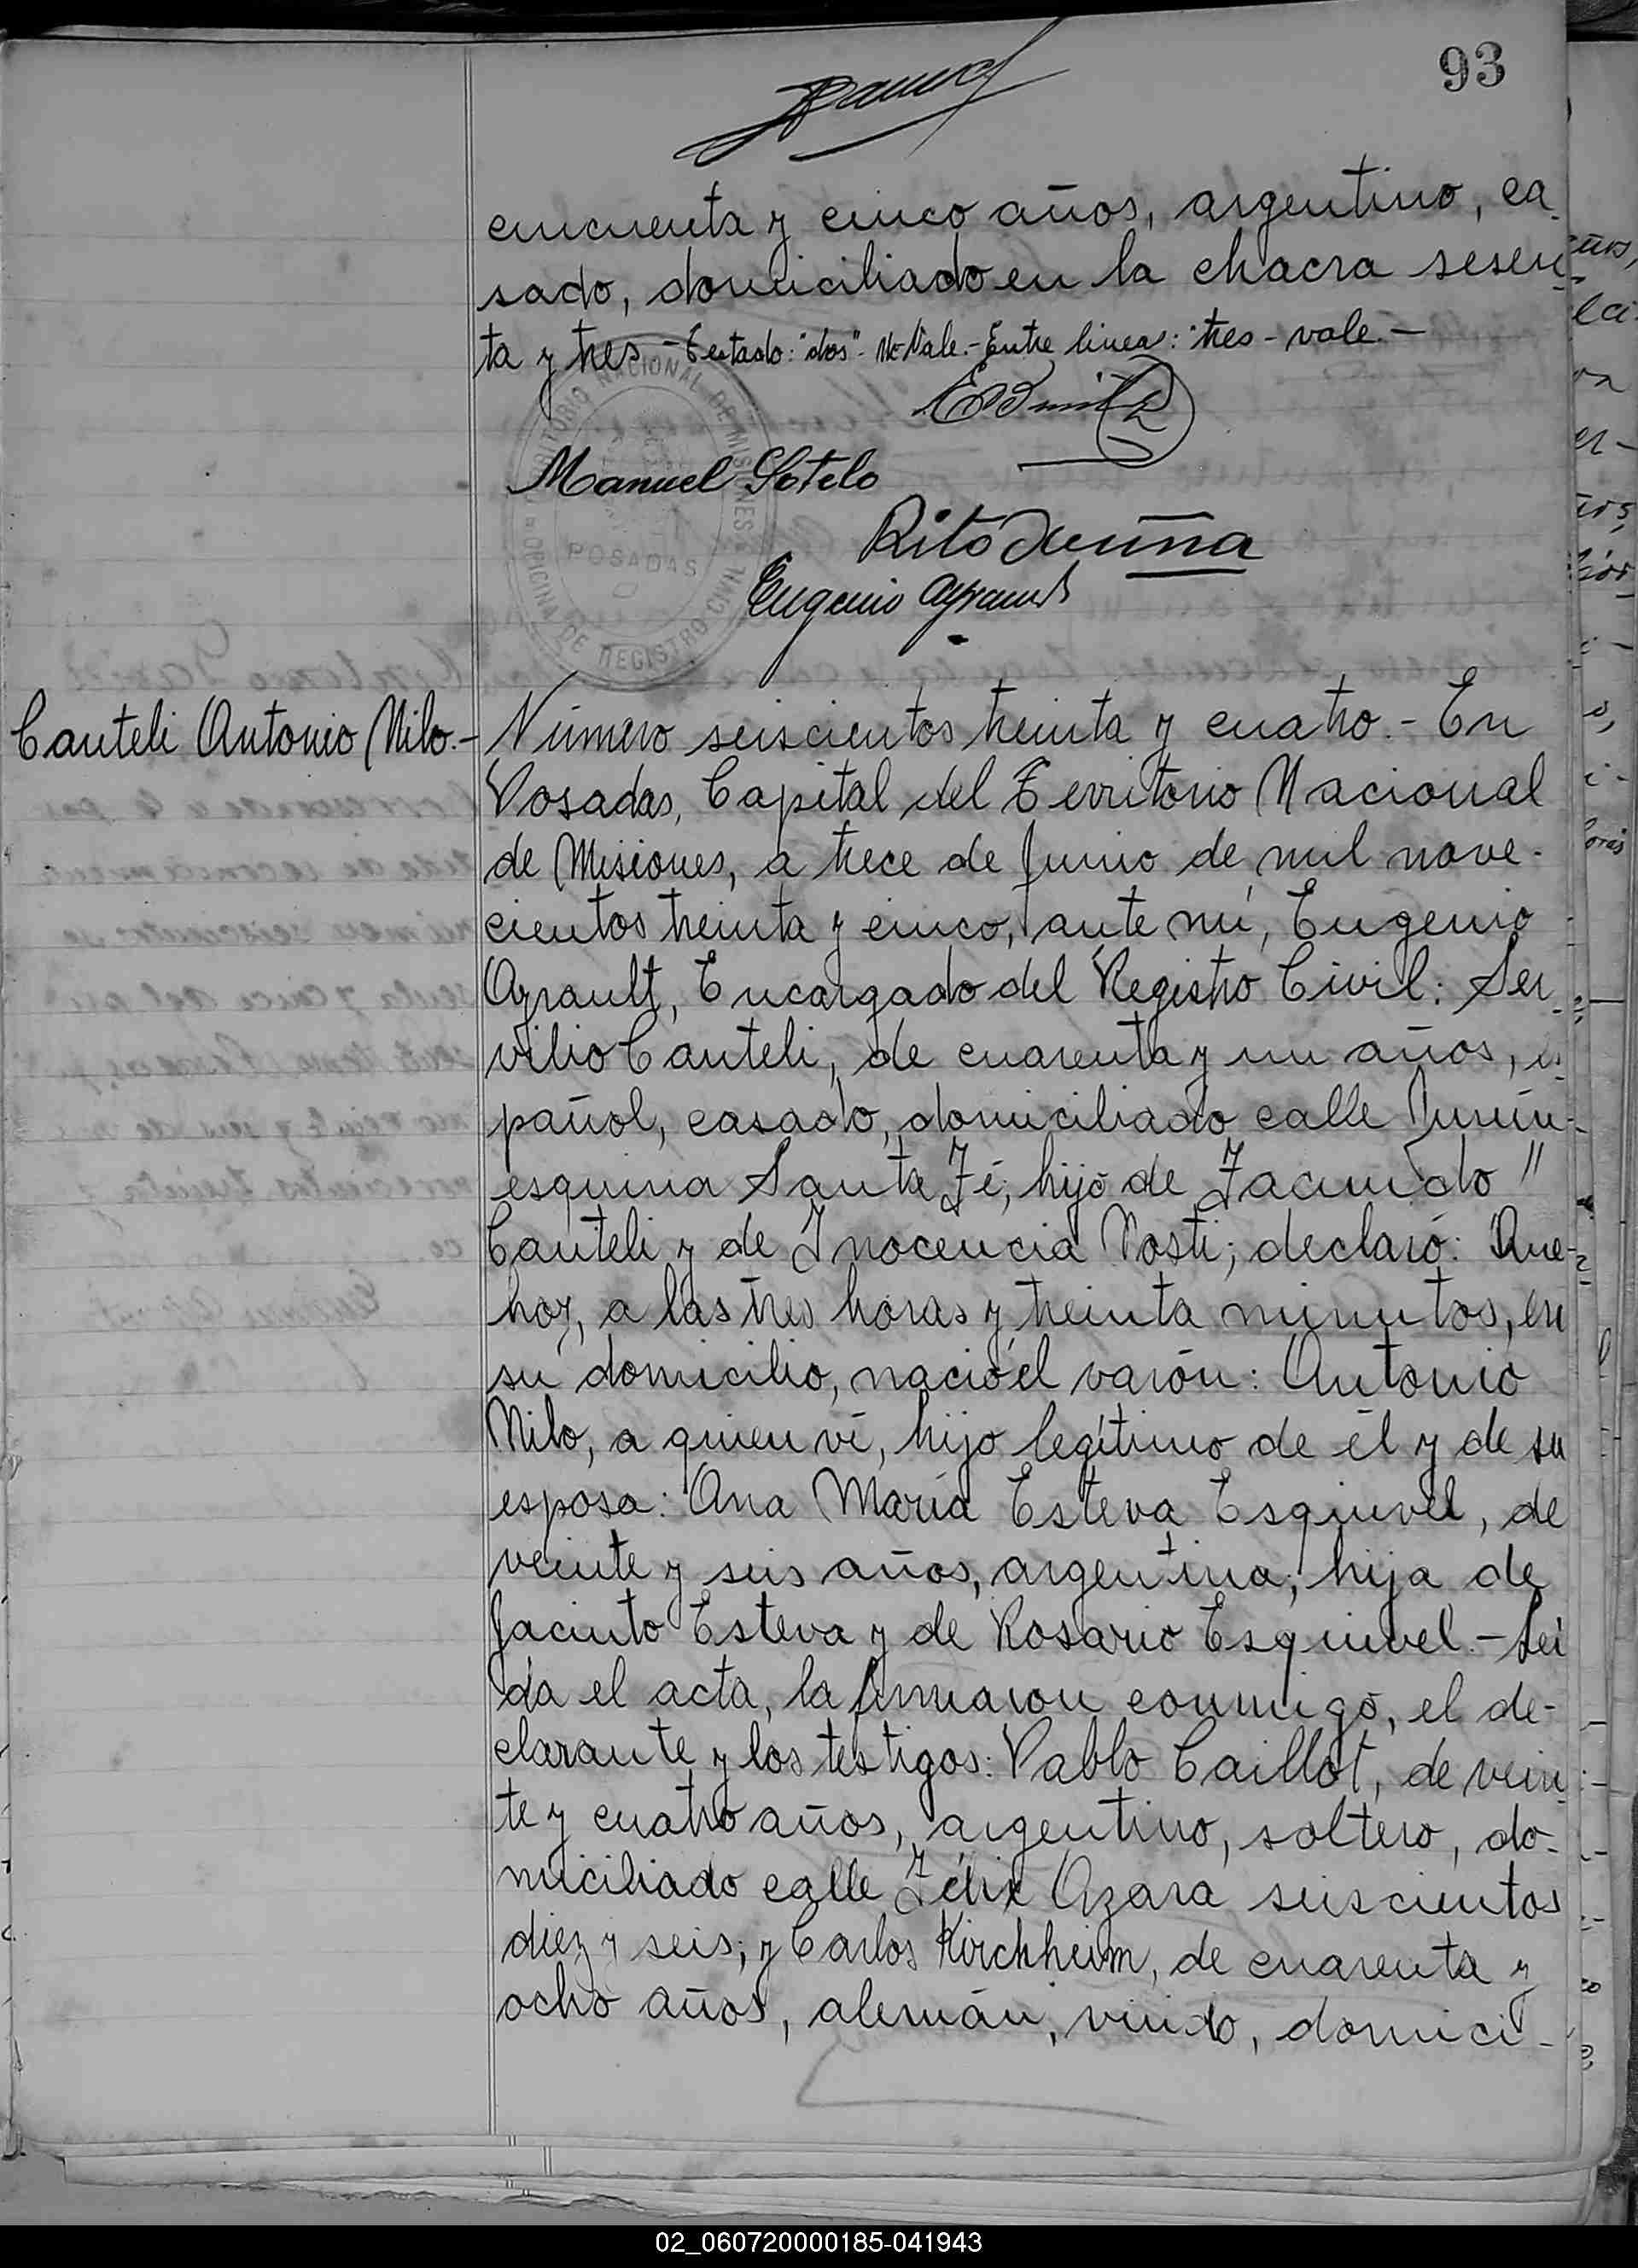 93
cincuenta y cinco años, argentino, ca-
sado, domiciliado en la chacra sesen-
ta y tres - Testado: "dos" - No Vale. - Entre linea: tres - vale. -
TERRITORIO NACIONAL DE MISIONES
OFICINA DE REGISTRO CIVIL
POSADAS
Manuel Sotelo
Rito Acuña
Eugenio Ayrault
Canteli Antonio Nilo. -
Número seiscientos treinta y cuatro. - En
Posadas, Capital del Territorio Nacional
de Misiones, a trece de Junio de mil nove-
cientos treinta y cinco, ante mí, Eugenio
Ayrault, Encargado del Registro Civil: Ser-
vilio Canteli, de cuarenta y un años, es-
pañol, casado, domiciliado calle Junín-
esquina Santa Fé; hijo de Facundo "
Canteli y de Inocencia Posti; declaró: Que-
hoy, a las tres horas y treinta minutos, en
su domicilio, nació el varón: Antonio
Nilo, a quien ví, hijo legítimo de él y de su
esposa: Ana María Esteva Esquivel, de
veinte y seis años, argentina; hija de
Jacinto Esteva y de Rosario Esquivel. - Lei
da el acta, la firmaron conmigo, el de-
clarante y los testigos: Pablo Caillot, de vein
te y cuatro años, argentino, soltero, do-
miciliado calle Félix Azara seiscientos
diez y seis; y Carlos Kirchheim, de cuarenta y
ocho años, alemán, viudo, domici-
02_060720000185-041943